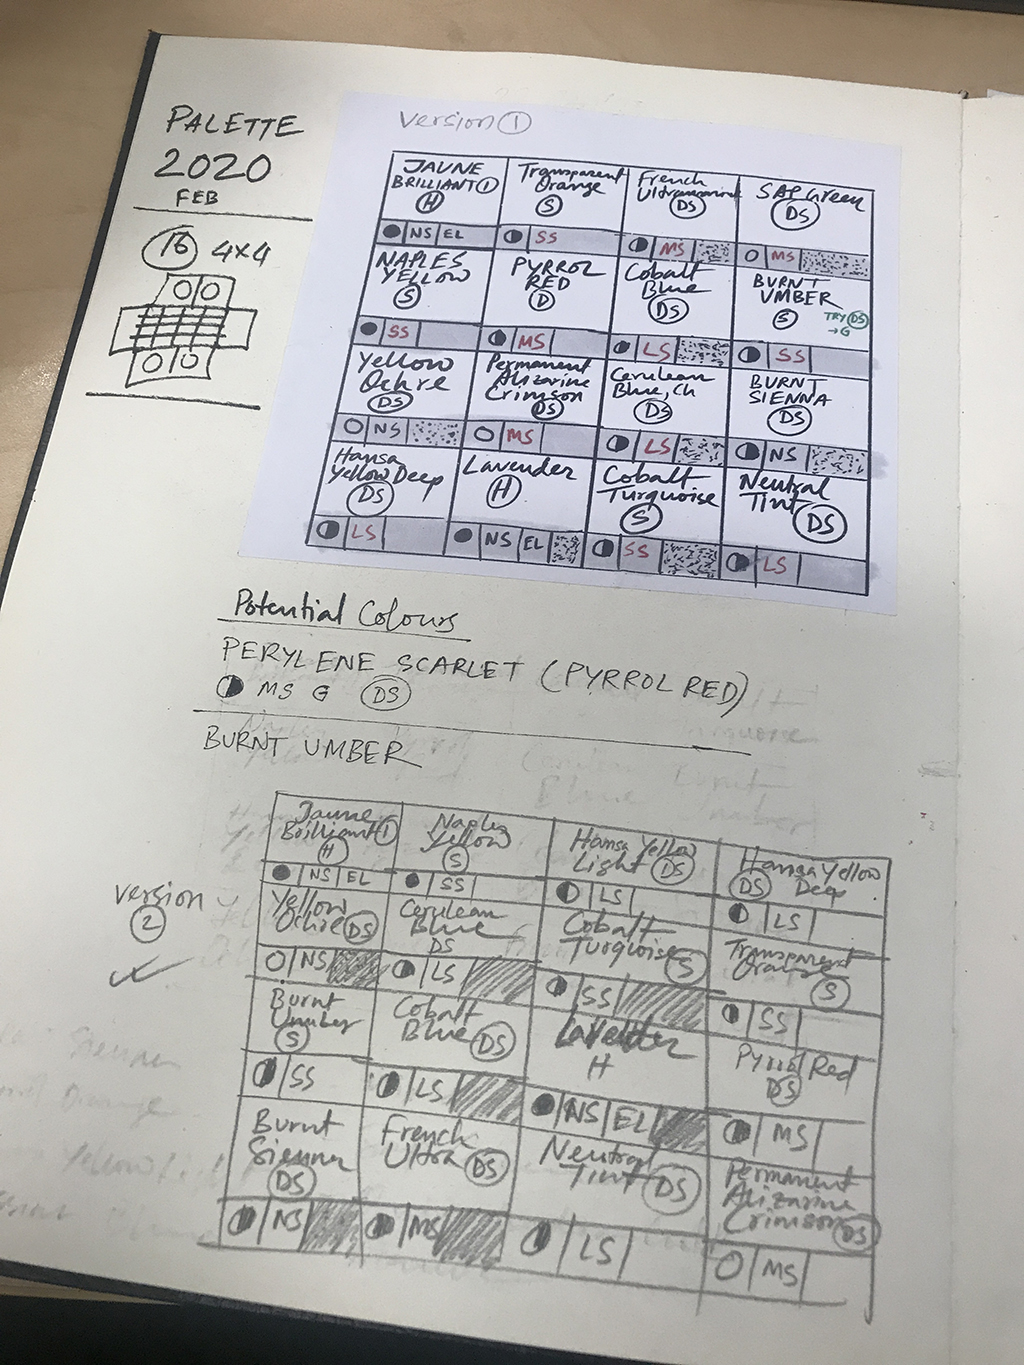 PALETTE
2020
FEB
16 4x4
Version 1
JAUNE
BRILLIANT 1
H
NS EL
Transparent
Orange
S
SS
French
Ultramarine
DS
MS
SAP Green
DS
MS
NAPLES
YELLOW
S
SS
PYRROL
RED
D
MS
Cobalt
Blue
DS
LS
BURNT
UMBER
S
TRY DS
→G
SS
Yellow
Ochre
DS
NS
Permanent
Alizarine
Crimson
DS
MS
Cerulean
Blue, Ch
DS
LS
BURNT
SIENNA
DS
NS
Hansa
Yellow Deep
DS
LS
Lavender
H
NS EL
Cobalt
Turquoise
S
SS
Neutral
Tint
DS
LS
Potential Colours
PERYLENE SCARLET (PYRROL RED)
MS G DS
BURNT UMBER
Version
2
Jaune
Brilliant 1
H
NS EL
Naples
Yellow
S
SS
Hansa Yellow
Light DS
LS
Hansa Yellow
DS Deep
LS
Yellow
Ochre DS
NS
Cerulean
Blue
DS
LS
Cobalt
Turquoise
S
SS
Transparent
Orange
S
SS
Burnt
Umber
S
SS
Cobalt
Blue DS
LS
Lavender
H
NS EL
Pyrrol Red
DS
MS
Burnt
Sienna
DS
NS
French
Ultra DS
MS
Neutral
Tint DS
LS
Permanent
Alizarine
Crimson DS
MS